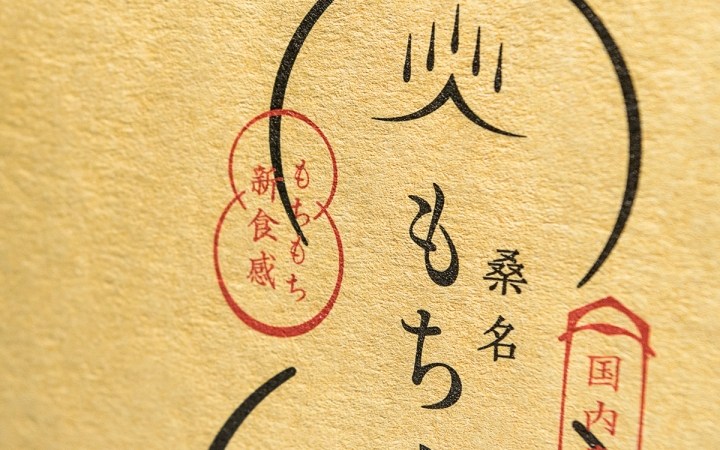 桑名
もち
もちもち
新食感
国内